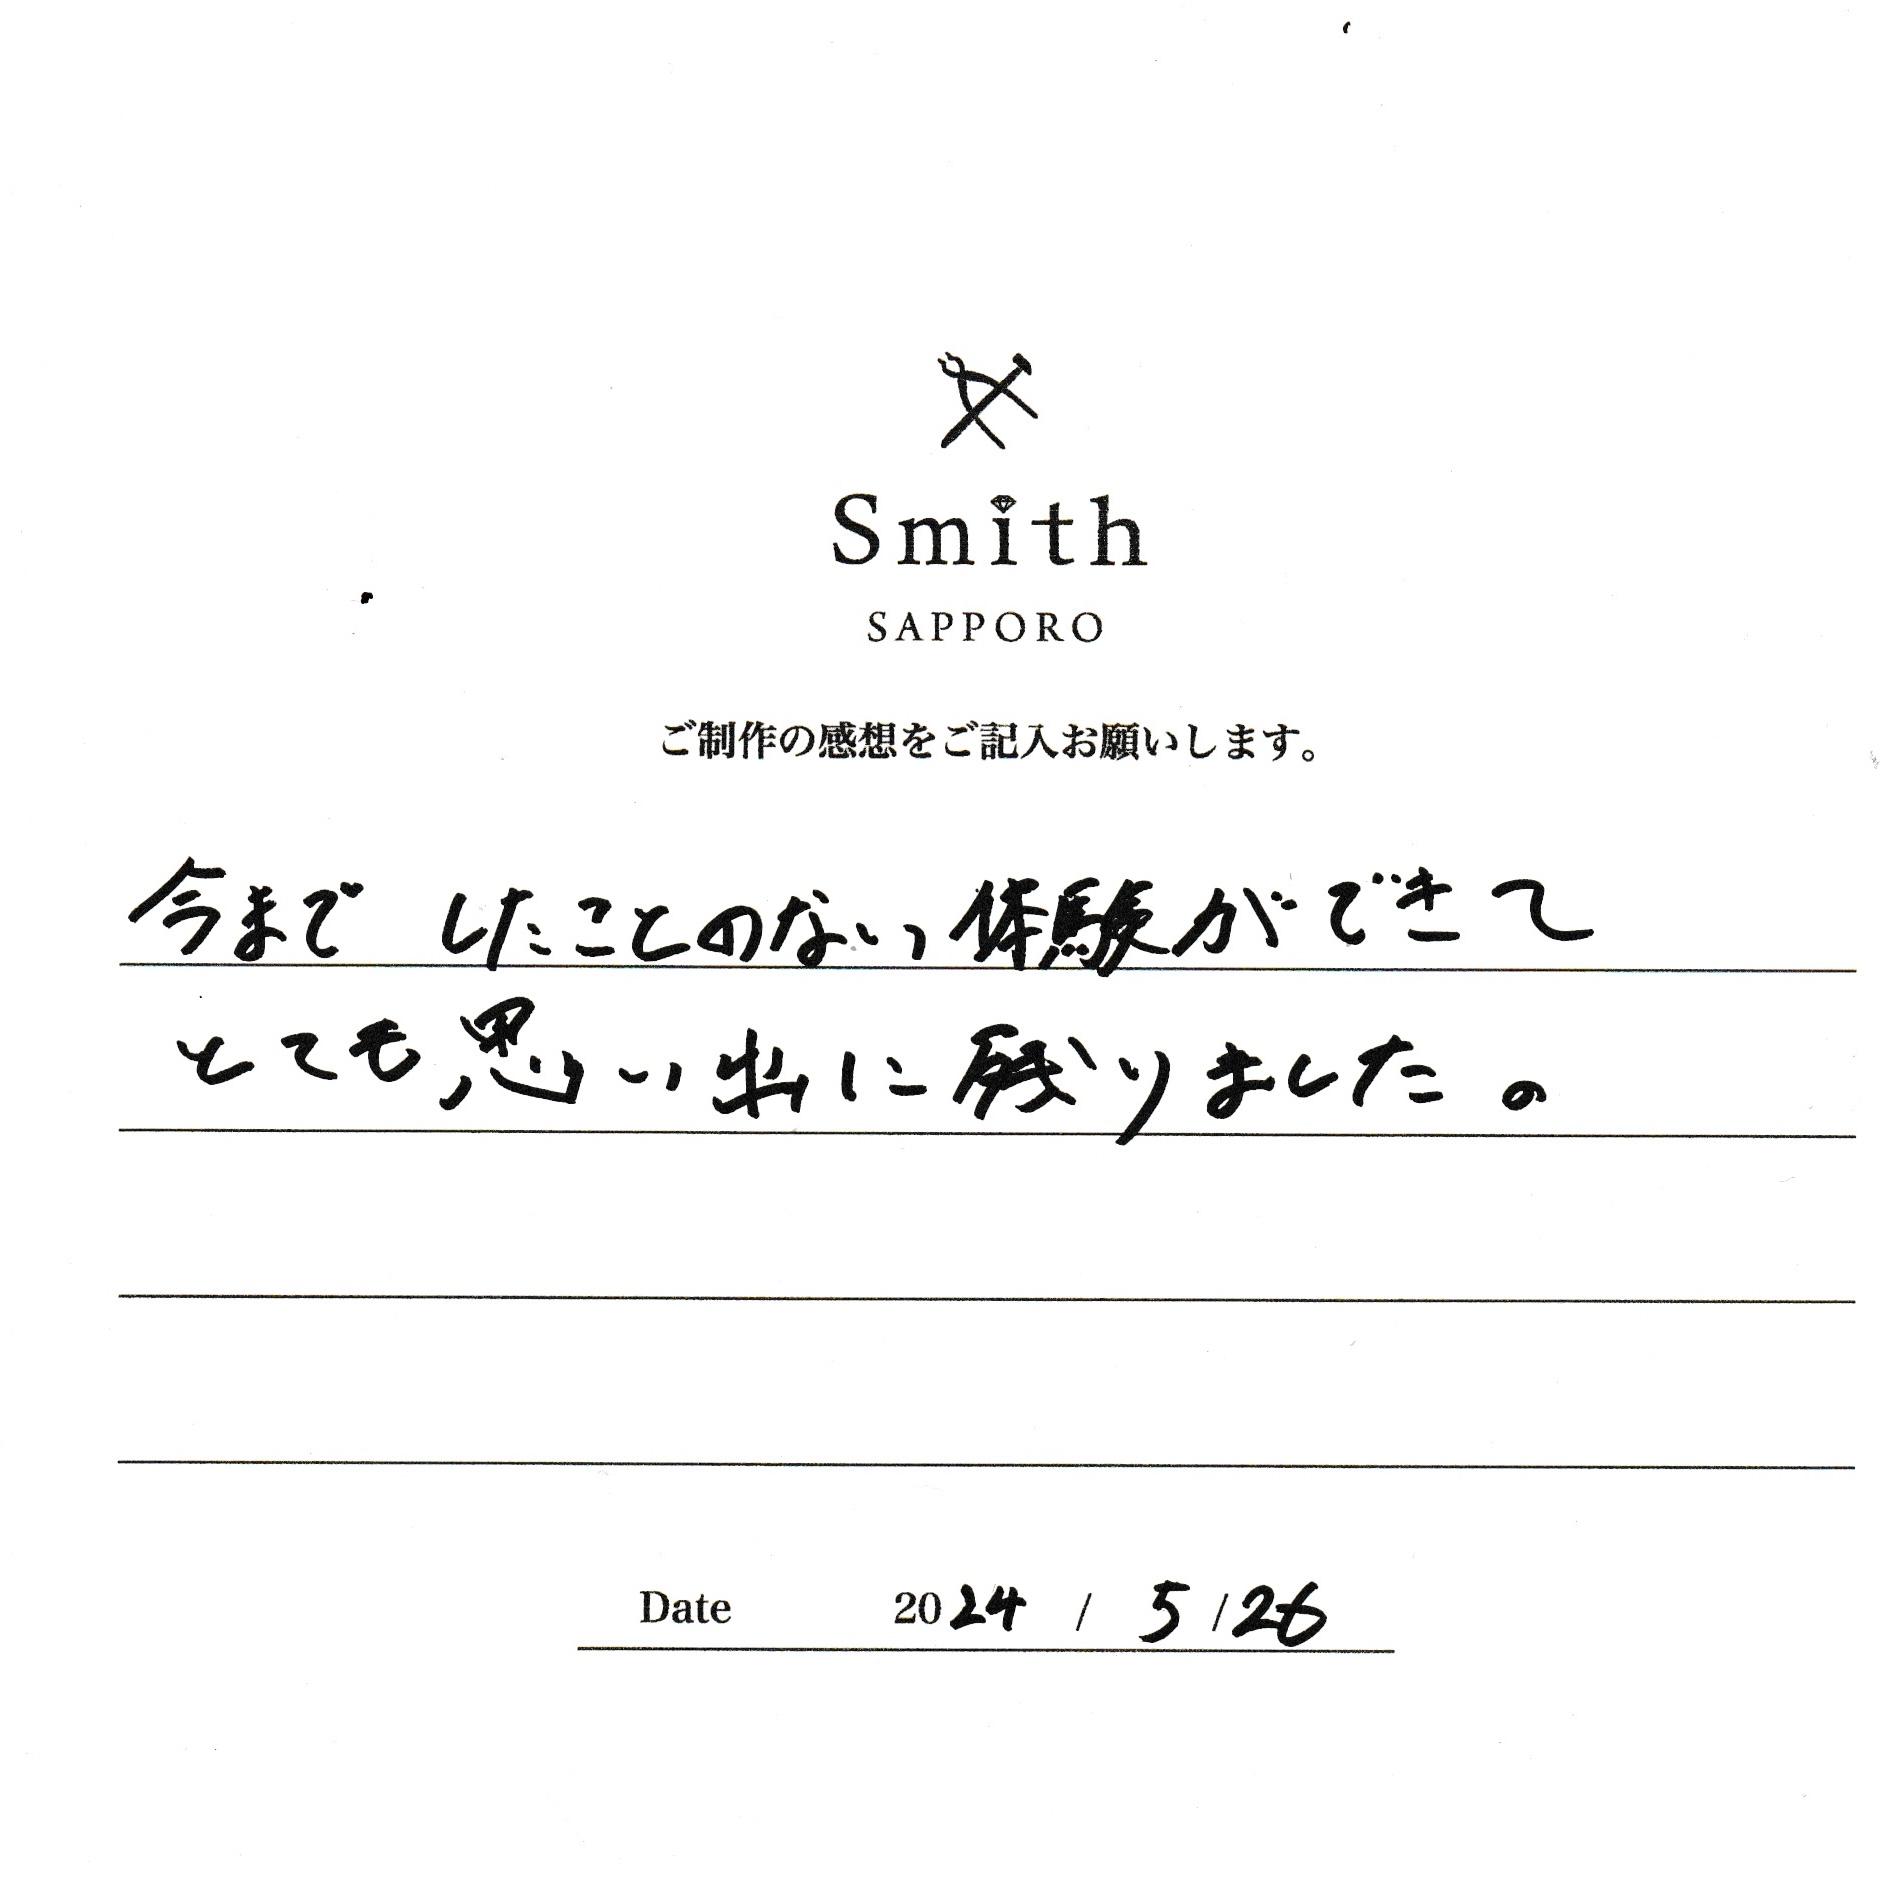 Smith
SAPPORO
ご制作の感想をご記入お願いします。
今まで したことのない体験ができて
とても思い出に残りました。
Date 2024 / 5 / 26